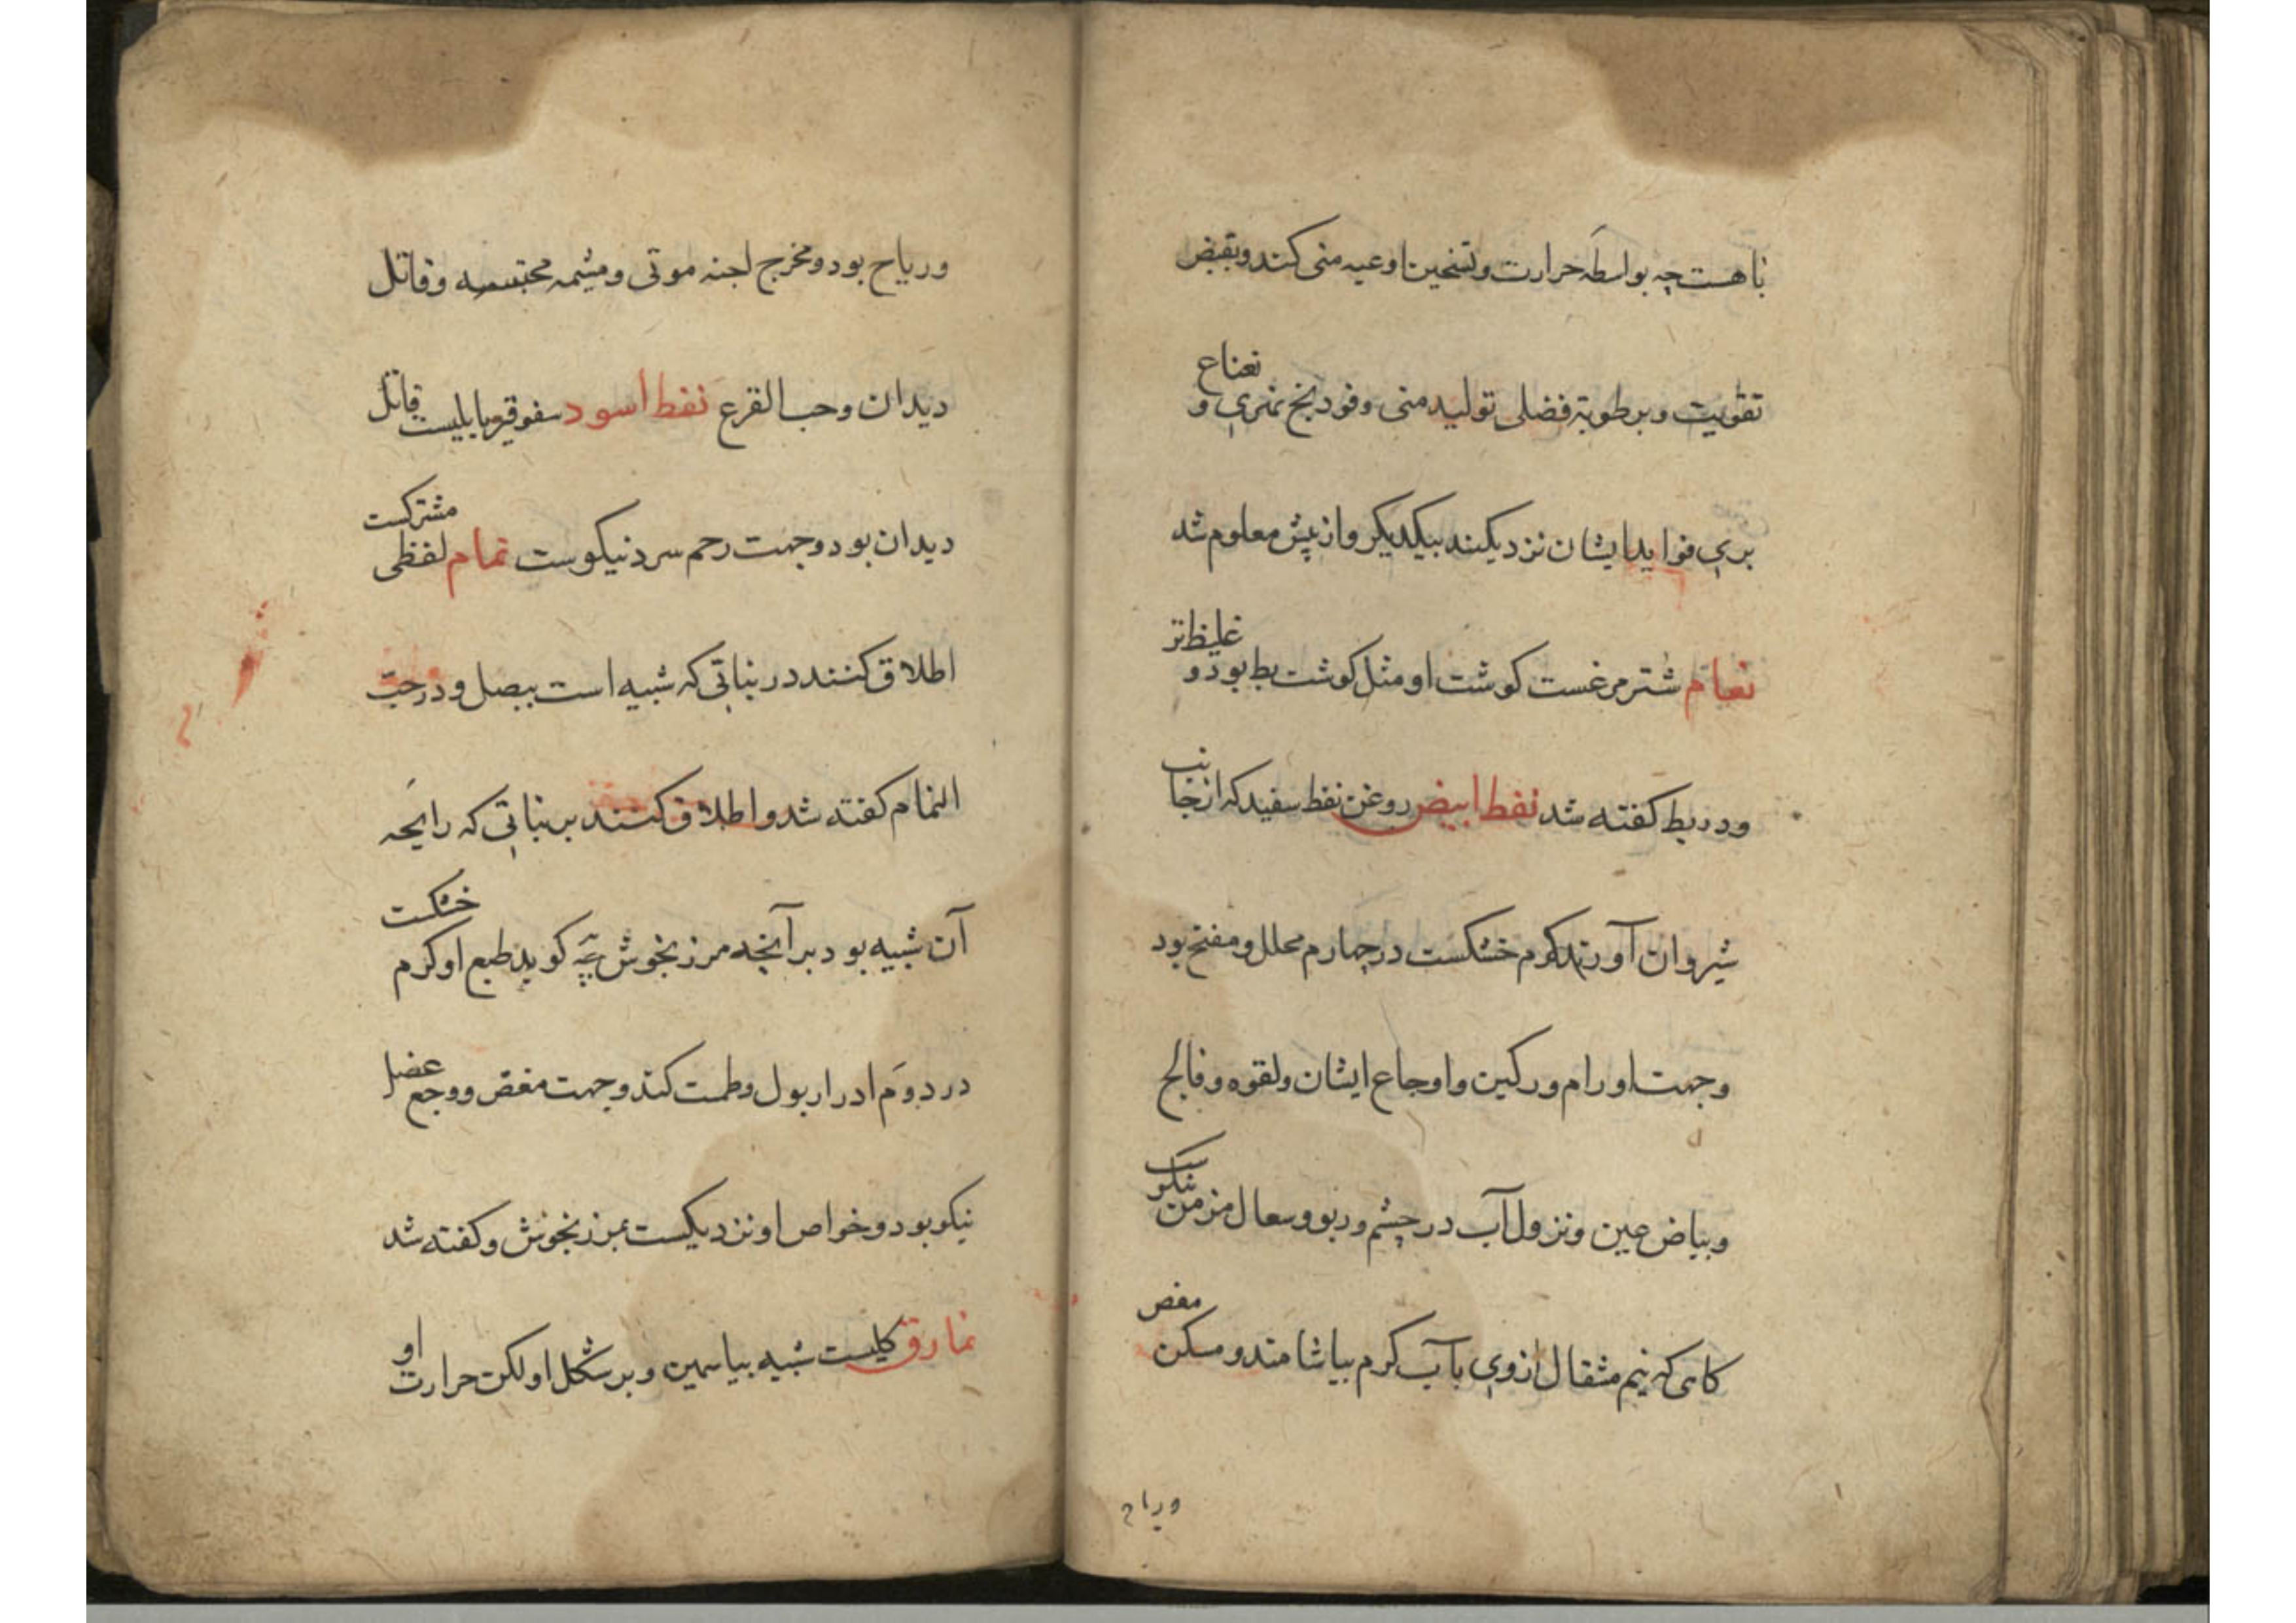 باهست چه بواسطه حرارت وتسخین اوعیه منی کند وبقبض
تقویت وبرطوبة فضلی تولید منی وفودنج نهری و نعناع
بری فواید ایشان نزدیکند بیکدیکر واز پیش معلوم شد
نعام شترمرغست کوشت او مثل کوشت بط بود و غلیظتر
ودربط کفته شد نفط ابیض روغن نفط سفید که از جانب
شیروان آورند کرم خشکست درچهارم محلل ومفتح بود
وجهت اورام ورکین واوجاع ایشان ولقوه وفالج
وبیاض عین ونزول آب در چشم وربو وسعال مزمن نیکو
کاهی که نیم مثقال ازوی باآب کرم بیاشامند ومسکن مغص
وریاح
وریاح بود ومخرج اجنه موتی ومشیمه محتبسه وقاتل
دیدان وحب القرع نفط اسود سفوقیر بابلیست قاتل
دیدان بود وجهت رحم سرد نیکوست نمام لفظی مشترکست
اطلاق کنند در نباتی که شبیه است ببصل ودرحب
النمام کفته شد واطلاق کنند بر نباتی که رایحه
آن شبیه بود برآیحه مرزنجوش چه کوید طبع او کرم خشکست
دردوم ادرار بول وطمث کند وجهت مغص ووجع عضل
نیکو بود وخواص او نزدیکست بمرزنجوش وکفته شد
نمارق کلیست شبیه بیاسمین وبرشکل او لکن حرارت او